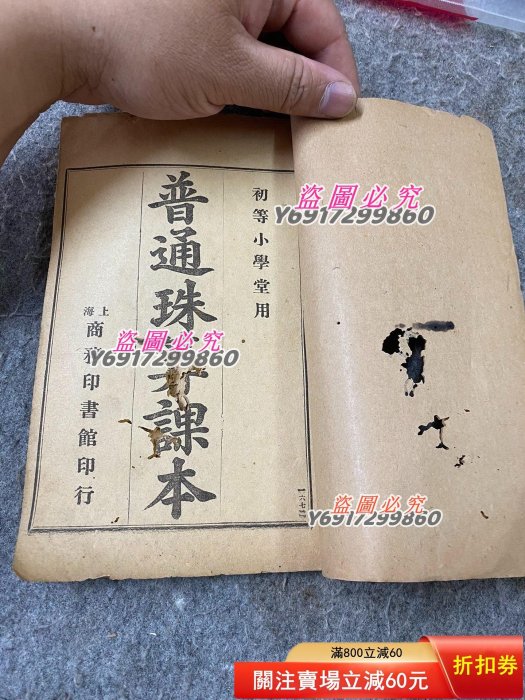 初等小學堂用
普通珠算課本
上海
商務印書館印行
一六七
盜圖必究
Y6917299860
盜圖必究
Y6917299860
盜圖必究
Y6917299860
滿800立減60
關注賣場立減60元
折扣券